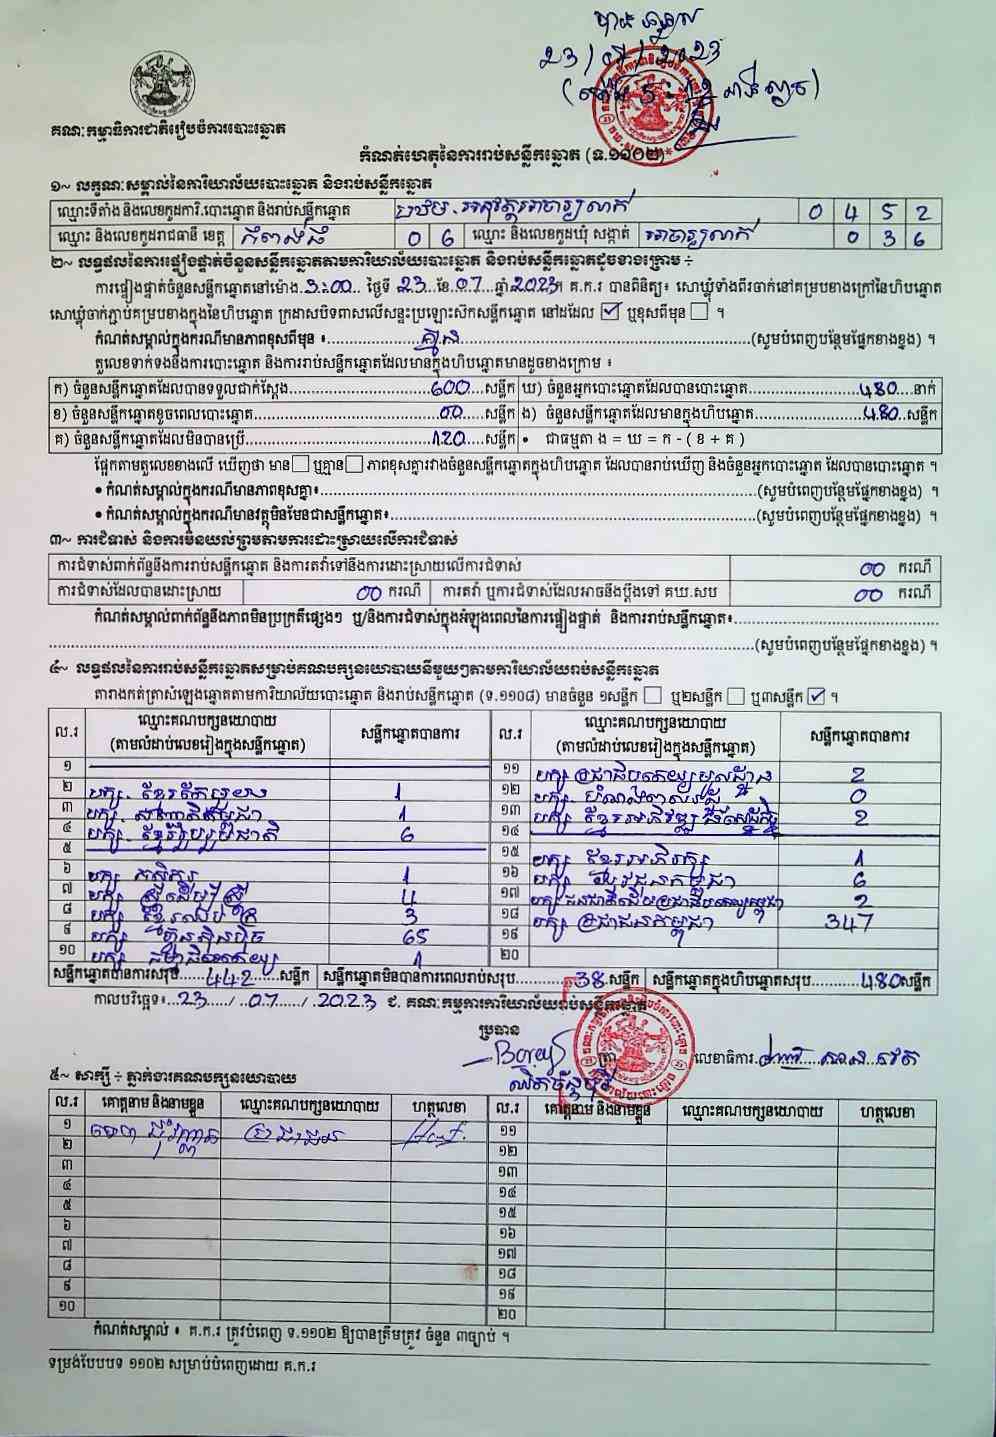 បានឃើញ
23/07/2023
គណៈកម្មាធិការជាតិរៀបចំការបោះឆ្នោត
កំណត់ហេតុនៃការរាប់សន្លឹកឆ្នោត (ទ.១១០២)
១~ លក្ខណៈសម្គាល់នៃការិយាល័យបោះឆ្នោត និងរាប់សន្លឹកឆ្នោត
ឈ្មោះទីតាំង និងលេខកូដការិ.បោះឆ្នោត និងរាប់សន្លឹកឆ្នោត បឋម.អនុវត្តអាចារ្យលាក់ 0 4 5 2
ឈ្មោះ និងលេខកូដរាជធានី ខេត្ត កំពង់ធំ 0 6 ឈ្មោះ និងលេខកូដឃុំ សង្កាត់ អាចារ្យលាក់ 0 3 6
២~ លទ្ធផលនៃការផ្ទៀងផ្ទាត់ចំនួនសន្លឹកឆ្នោតតាមការិយាល័យបោះឆ្នោត និងរាប់សន្លឹកឆ្នោតដូចខាងក្រោម ÷
ការផ្ទៀងផ្ទាត់ចំនួនសន្លឹកឆ្នោតនៅម៉ោង 3:00 ថ្ងៃទី 23 ខែ 07 ឆ្នាំ 2023។ គ.ក.រ បានពិនិត្យ៖ សោឃ្មុំទាំងពីរចាក់នៅគម្របខាងក្រៅនៃហិបឆ្នោត
សោឃ្មុំចាក់ភ្ជាប់គម្របខាងក្នុងនៃហិបឆ្នោត ក្រដាសបិទពាសលើសន្ទះប្រឡោះសឹកសន្លឹកឆ្នោត នៅដដែល ☑ ឬខុសពីមុន ☐ ។
កំណត់សម្គាល់ក្នុងករណីមានភាពខុសពីមុន ៖ គ្មាន (សូមបំពេញបន្ថែមផ្នែកខាងខ្នង) ។
តួលេខទាក់ទងនឹងការបោះឆ្នោត និងការរាប់សន្លឹកឆ្នោតដែលមានក្នុងហិបឆ្នោតមានដូចខាងក្រោម ៖
ក) ចំនួនសន្លឹកឆ្នោតដែលបានទទួលជាក់ស្តែង 600 សន្លឹក ឃ) ចំនួនអ្នកបោះឆ្នោតដែលបានបោះឆ្នោត 480 នាក់
ខ) ចំនួនសន្លឹកឆ្នោតខូចពេលបោះឆ្នោត 00 សន្លឹក ង) ចំនួនសន្លឹកឆ្នោតដែលមានក្នុងហិបឆ្នោត 480 សន្លឹក
គ) ចំនួនសន្លឹកឆ្នោតដែលមិនបានប្រើ 120 សន្លឹក • ជាធម្មតា ង = ឃ = ក - ( ខ + គ )
ផ្អែកតាមតួលេខខាងលើ ឃើញថា មាន ☐ ឬគ្មាន ☐ ភាពខុសគ្នារវាងចំនួនសន្លឹកឆ្នោតក្នុងហិបឆ្នោត ដែលបានរាប់ឃើញ និងចំនួនអ្នកបោះឆ្នោត ដែលបានបោះឆ្នោត ។
• កំណត់សម្គាល់ក្នុងករណីមានភាពខុសគ្នា៖ (សូមបំពេញបន្ថែមផ្នែកខាងខ្នង) ។
• កំណត់សម្គាល់ក្នុងករណីមានវត្ថុមិនមែនជាសន្លឹកឆ្នោត៖ (សូមបំពេញបន្ថែមផ្នែកខាងខ្នង) ។
៣~ ការជំទាស់ និងការមិនយល់ព្រមតាមការដោះស្រាយលើការជំទាស់
ការជំទាស់ពាក់ព័ន្ធនឹងការរាប់សន្លឹកឆ្នោត និងការតវ៉ាទៅនឹងការដោះស្រាយលើការជំទាស់ 00 ករណី
ការជំទាស់ដែលបានដោះស្រាយ 00 ករណី ការតវ៉ា ឬការជំទាស់ដែលអាចនឹងប្តឹងទៅ គឃ.សប 00 ករណី
កំណត់សម្គាល់ពាក់ព័ន្ធនឹងភាពមិនប្រក្រតីផ្សេងៗ ឬ/និងការជំទាស់ក្នុងអំឡុងពេលនៃការផ្ទៀងផ្ទាត់ និងការរាប់សន្លឹកឆ្នោត៖
(សូមបំពេញបន្ថែមផ្នែកខាងខ្នង) ។
៤~ លទ្ធផលនៃការរាប់សន្លឹកឆ្នោតសម្រាប់គណបក្សនយោបាយនីមួយៗតាមការិយាល័យរាប់សន្លឹកឆ្នោត
តារាងកត់ត្រាសំឡេងឆ្នោតតាមការិយាល័យបោះឆ្នោត និងរាប់សន្លឹកឆ្នោត (ទ.១១០៨) មានចំនួន ១សន្លឹក ☐ ឬ២សន្លឹក ☐ ឬ៣សន្លឹក ☑ ។
ល.រ ឈ្មោះគណបក្សនយោបាយ (តាមលំដាប់លេខរៀងក្នុងសន្លឹកឆ្នោត) សន្លឹកឆ្នោតបានការ ល.រ ឈ្មោះគណបក្សនយោបាយ (តាមលំដាប់លេខរៀងក្នុងសន្លឹកឆ្នោត) សន្លឹកឆ្នោតបានការ
១ ១១ បក្ស ប្រជាធិបតេយ្យមូលដ្ឋាន 2
២ បក្ស. ខ្មែរ 1 ១២ បក្ស. 0
៣ បក្ស. កម្ពុជា 1 ១៣ បក្ស ខ្មែរអភិវឌ្ឍន៍សេដ្ឋកិច្ច 2
៤ បក្ស. ខ្មែររួបរួមជាតិ 6 ១៤
៥ ១៥ បក្ស ខ្មែរអភិរក្ស 1
៦ បក្ស កសិករ 1 ១៦ បក្ស យុវជនកម្ពុជា 6
៧ បក្ស ស្ត្រីដើម្បីស្ត្រី 4 ១៧ បក្ស ជនជាតិដើមប្រជាធិបតេយ្យកម្ពុជា 2
៨ បក្ស ខ្មែរឈប់ក្រ 3 ១៨ បក្ស ប្រជាជនកម្ពុជា 347
៩ បក្ស ហ៊្វុនស៊ិនប៉ិច 65 ១៩
១០ បក្ស ធម្មាធិបតេយ្យ 1 ២០
សន្លឹកឆ្នោតបានការសរុប 442 សន្លឹក សន្លឹកឆ្នោតមិនបានការពេលរាប់សរុប 38 សន្លឹក សន្លឹកឆ្នោតក្នុងហិបឆ្នោតសរុប 480 សន្លឹក
កាលបរិច្ឆេទ៖ 23/07/2023 ជ. គណៈកម្មការការិយាល័យរាប់សន្លឹកឆ្នោត
ប្រធាន
Borey លេខាធិការ
៥~ សាក្សី ÷ ភ្នាក់ងារគណបក្សនយោបាយ
ល.រ គោត្តនាម និងនាមខ្លួន ឈ្មោះគណបក្សនយោបាយ ហត្ថលេខា ល.រ គោត្តនាម និងនាមខ្លួន ឈ្មោះគណបក្សនយោបាយ ហត្ថលេខា
១ ប្រជាជន ១១
២ ១២
៣ ១៣
៤ ១៤
៥ ១៥
៦ ១៦
៧ ១៧
៨ ១៨
៩ ១៩
១០ ២០
កំណត់សម្គាល់ ៖ គ.ក.រ ត្រូវបំពេញ ទ.១១០២ ឱ្យបានត្រឹមត្រូវ ចំនួន ៣ច្បាប់ ។
ទម្រង់បែបបទ ១១០២ សម្រាប់បំពេញដោយ គ.ក.រ